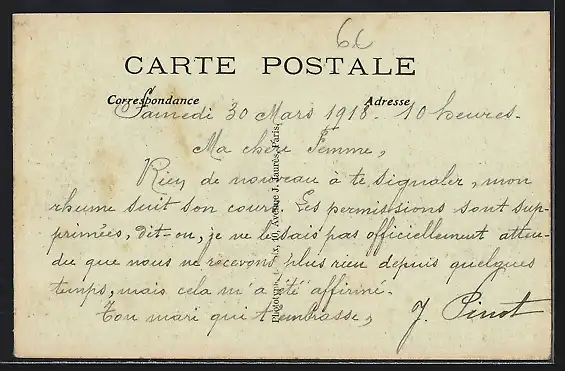 6c
CARTE POSTALE
Correspondance Adresse
Samedi 30 Mars 1918. 10 heures.
Ma chère Femme,
Rien de nouveau à te signaler, mon
rhume suit son cours. Les permissions sont sup-
primées, dit-on, je ne le sais pas officiellement atten-
du que nous ne recevons plus rien depuis quelques
temps, mais cela m'a été affirmé.
Ton mari qui t'embrasse,
J. Pinot
10, Avenue J. Jaurès, Paris.